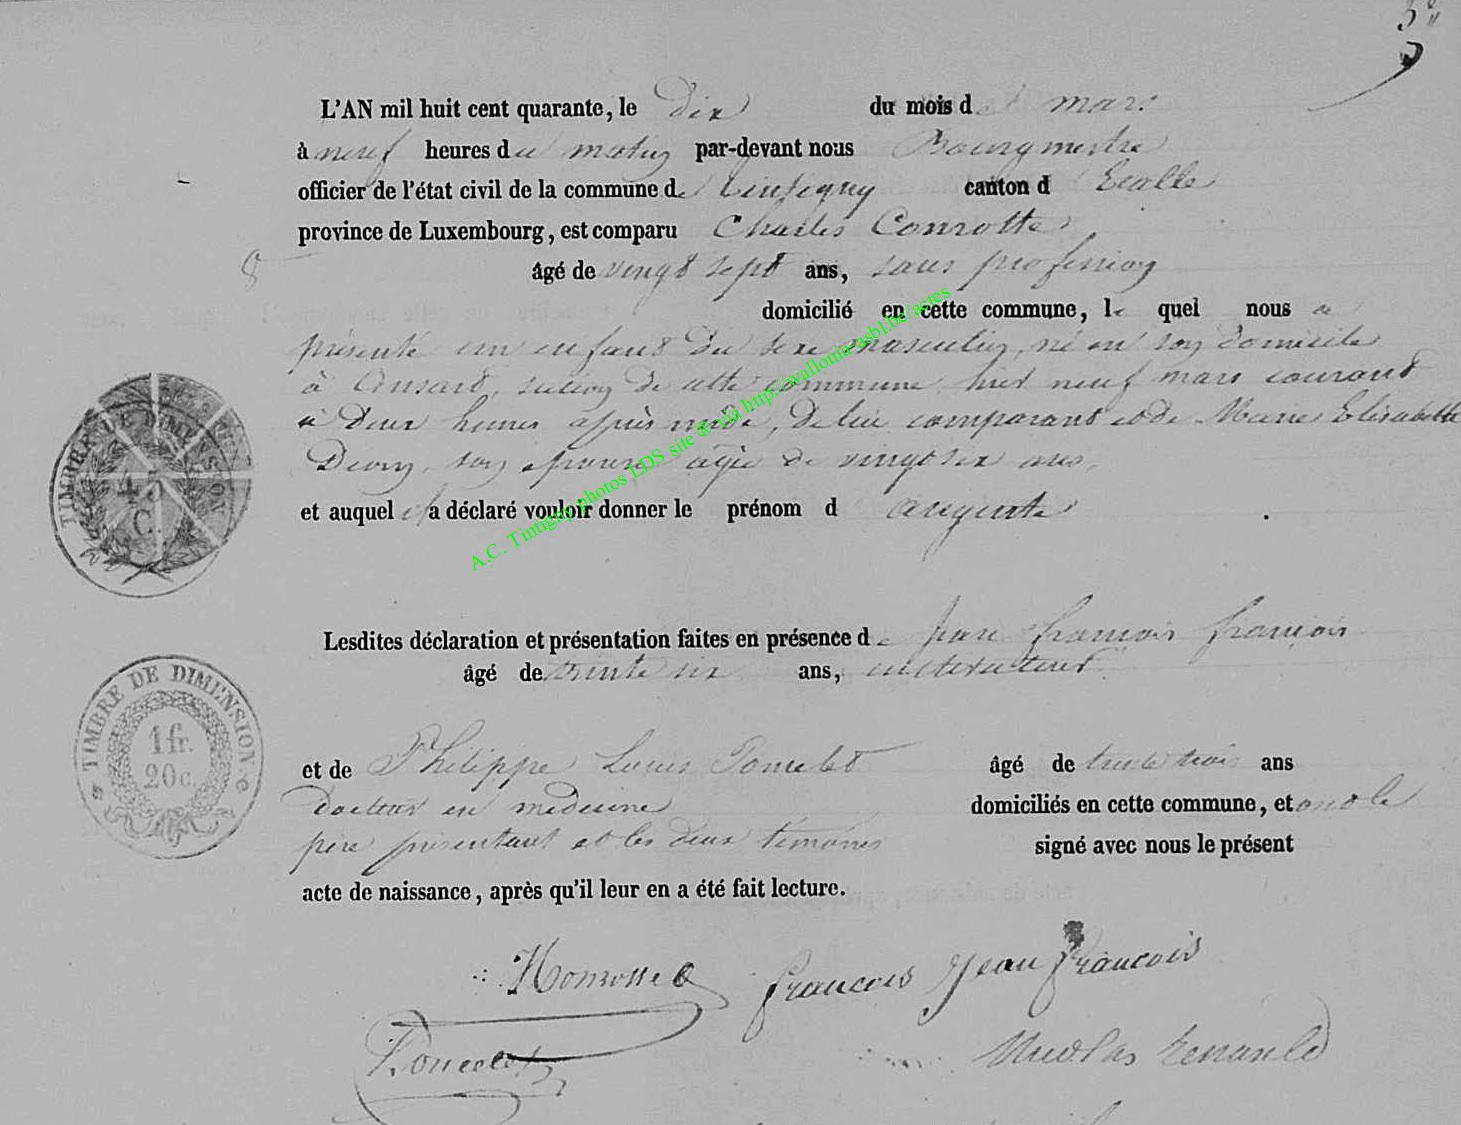 L'AN mil huit cent quarante, le dix du mois de mars
à neuf heures du matin par-devant nous Bourgmestre
officier de l'état civil de la commune de Tintigny canton d' Etalle
province de Luxembourg, est comparu Charles Conrotte
8
âgé de vingt sept ans, sans profession
domicilié en cette commune, le quel nous a
présenté un enfant du sexe masculin, né en son domicile
à Ansart, section de cette commune hier neuf mars courant
à deux heures après midi, de lui comparant et de Marie Elisabette
son épouse agée de vingt six ans,
et auquel il a déclaré vouloir donner le prénom d auguste
Lesdites déclaration et présentation faites en présence de jean françois françois
âgé de trente six ans, instituteur
et de Philippe Louis Poncelet âgé de trente trois ans
docteur en medecine domiciliés en cette commune, et ont le
père présentant et les deux témoins signé avec nous le présent
acte de naissance, après qu'il leur en a été fait lecture.
francois Jean francois
Poncelet
Nicolas
TIMBRE DE DIMENSION
45 C.
TIMBRE DE DIMENSION
1 fr.
20 c.
A.C. Tintigny photos LDS site @ via http://wallonia-asbl.be actes